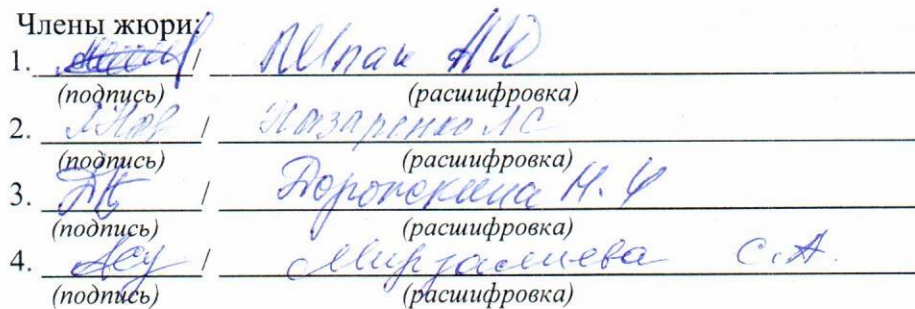 Члены жюри:
1. / Шпак АЮ
(подпись) (расшифровка)
2. / Назаренко ЛС
(подпись) (расшифровка)
3. /
(подпись) (расшифровка)
4. / Мирзалиева С.А.
(подпись) (расшифровка)